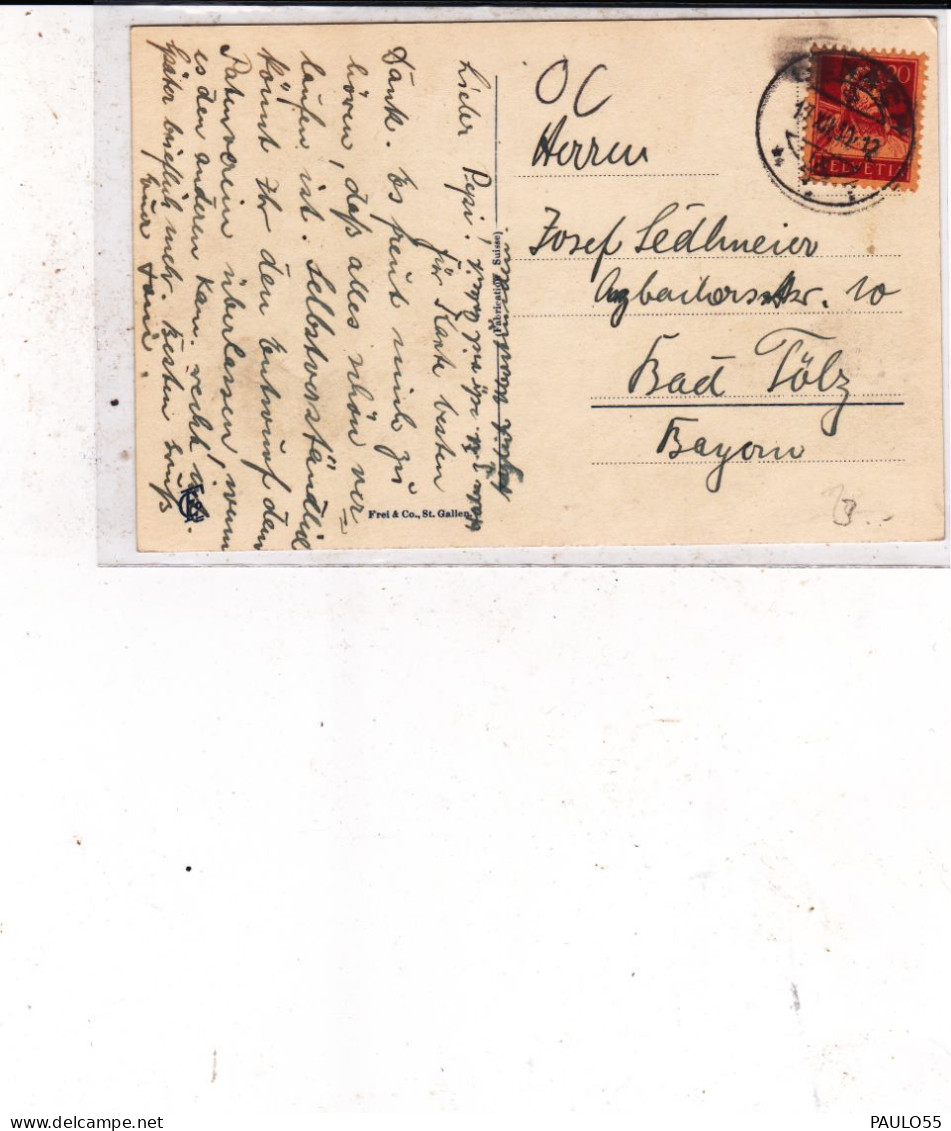 Lieber Pepi!
Für Karte besten
Dank. Es freut mich zu
hören, daß alles schön ver
laufen ist. Selbstverständlich
könnt Ihr den Entwurf dem
Patenverein überlassen, wenn
es den anderen kan. recht ist.
Später brieflich mehr. Besten Gruß
Euer
OC
Herren
Josef Sedlmeier
10
Bad Tölz
Bayern
(Fabrication Suisse)
Frei & Co., St. Gallen.
20
HELVETIA
PAULO55